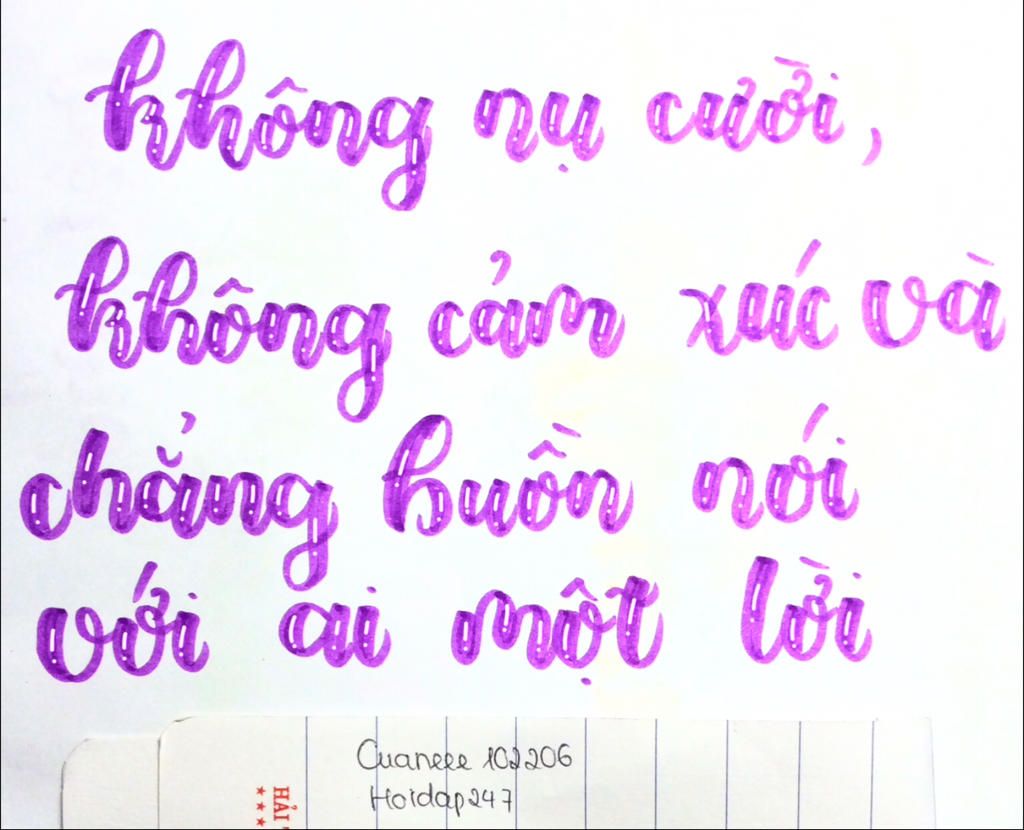 không nụ cười,
không cảm xúc và
chẳng buồn nói
với ai một lời
Cuaneee 102206
Hoidap247
HẢI